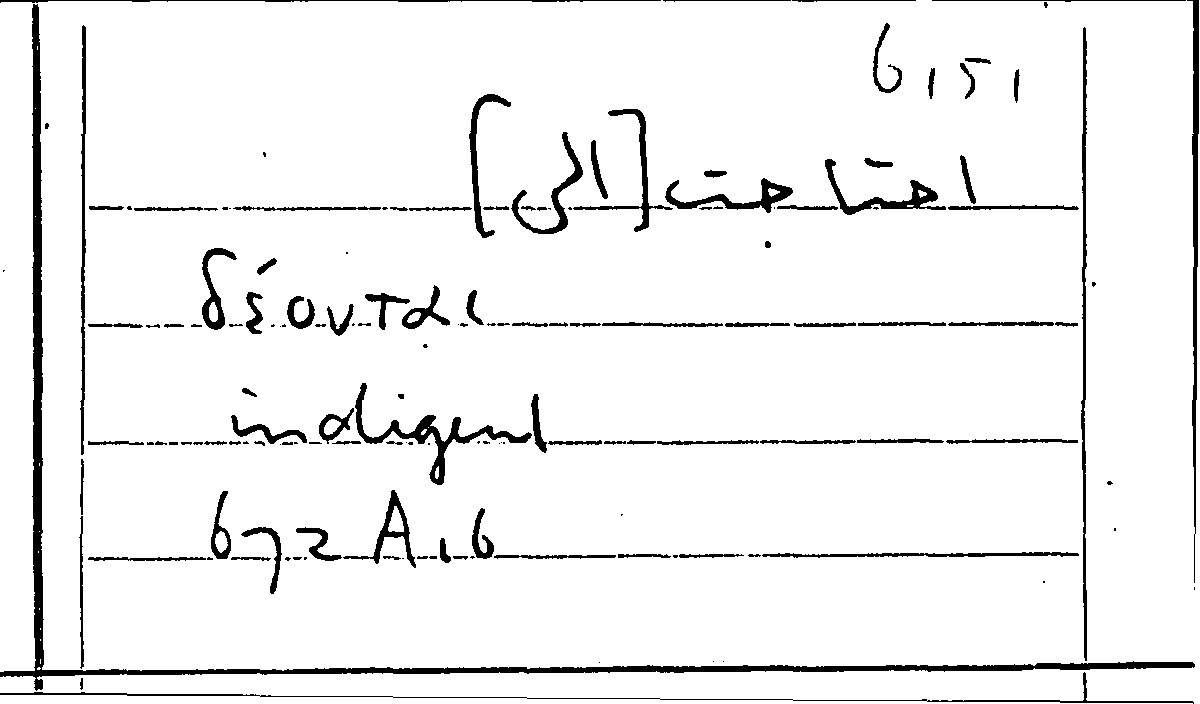 6151
احتاجت [الى]
δέονται
indigent
672 A 16